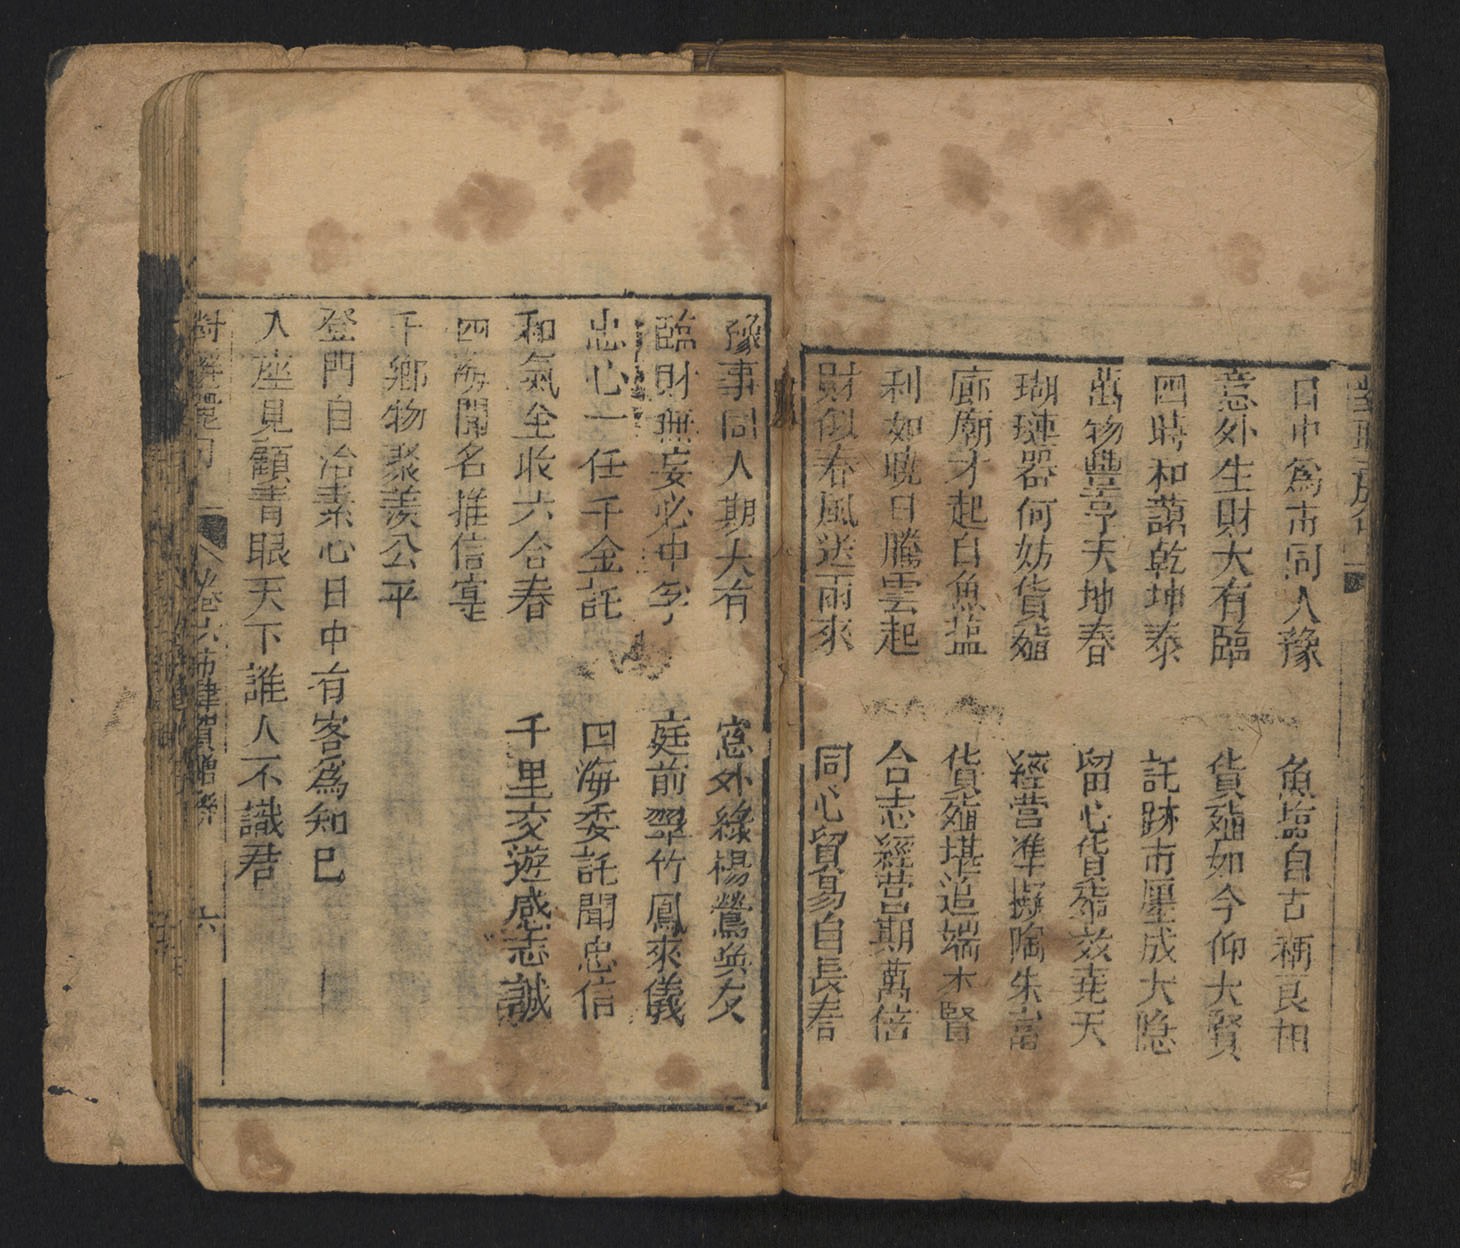 日中爲市同人豫　魚塩自古稱良相
意外生財大有臨　貨殖如今仰大賢
四時和藹乾坤泰　託跡市廛成大隱
萬物豐亨天地春　留心貨殖效堯天
瑚璉器何妨貨殖　經營準擬陶朱富
廊廟才起自魚塩　貨殖堪追端木賢
利如曉日騰雲起　合志經营期萬倍
財似春風送雨來　同心貿易自長春
豫事同人期大有　窓外綠楊鶯與友
臨財無妄必中孚　庭前翠竹鳳來儀
忠心一任千金託　四海委託聞忠信
和氣全收六合春　千里交遊感志誠
四海聞名推信寔
千鄉物聚羨公平
登門自洽素心日中有客為知己
入座見顧青眼天下誰人不識君
六